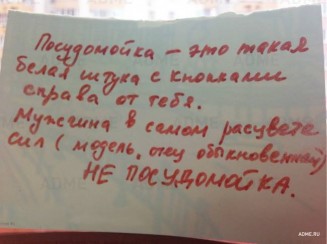 Посудомойка – это такая
белая штука с кнопками
справа от тебя.
Мужчина в самом расцвете
сил (модель, отец обыкновенный)
НЕ ПОСУДОМОЙКА.
ADME.RU